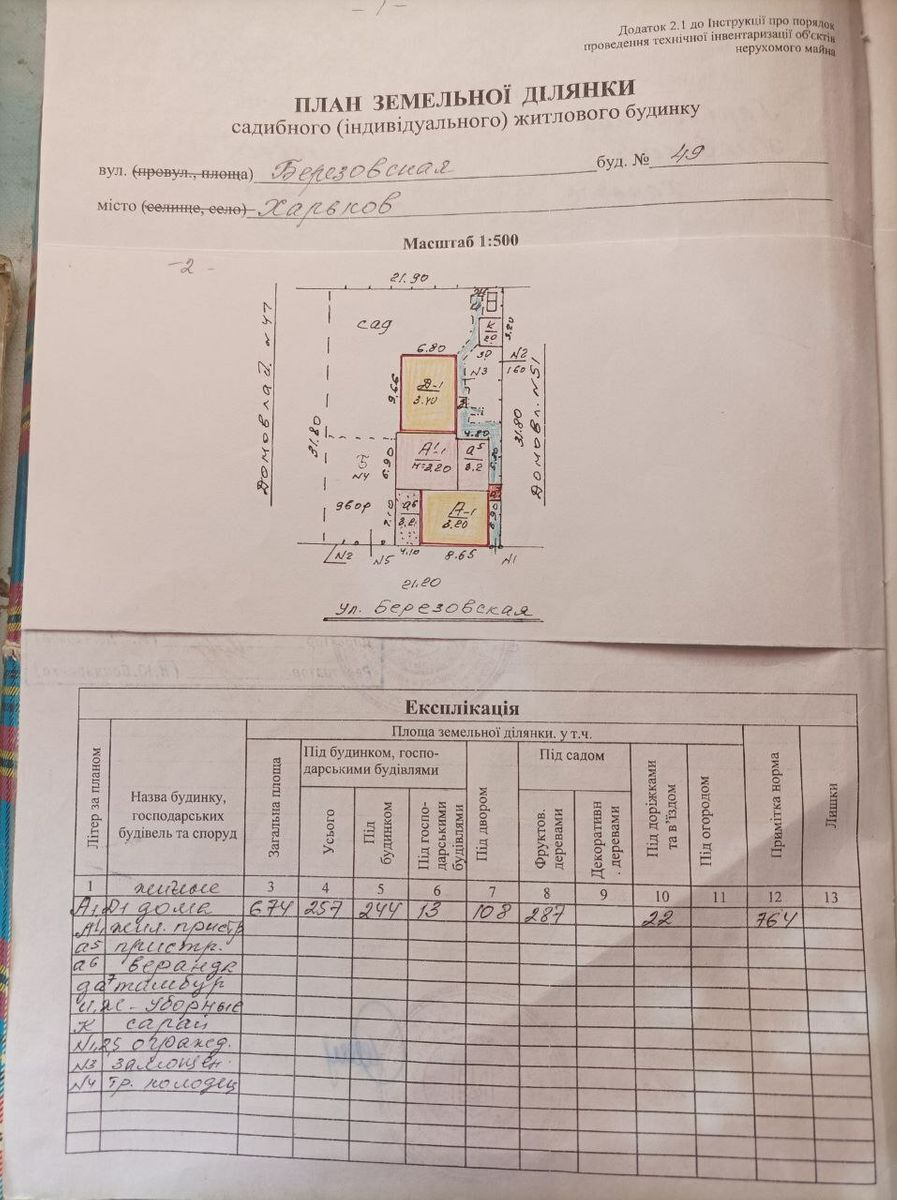 - 1 -
Додаток 2.1 до Інструкції про порядок
проведення технічної інвентаризації об'єктів
нерухомого майна
ПЛАН ЗЕМЕЛЬНОЇ ДІЛЯНКИ
садибного (індивідуального) житлового будинку
вул. (провул., площа) Березовская буд. № 49
місто (селище, село) Харьков
Масштаб 1:500
-2-
21.90
сад
К
20
3.20
6.80
30
N2
160
N3
9.66
Д-1
3.40
Домовлад. N 47
31.80
31.80
Домовл. N51
4.80
А'-1
а5
3.2
Б
N4
6.90
двор
а6
А-1
3.20
N2
N5
4.10
8.65
N1
21.20
ул. Березовская
Експлікація
Літер за планом
Назва будинку, господарських будівель та споруд
Площа земельної ділянки, у т.ч.
Загальна площа
Під будинком, госпо-
дарськими будівлями
Усього
Під будинком
Під госпо-дарськими будівлями
Під двором
Під садом
Фруктов. деревами
Декоративн. деревами
Під доріжками та в'їздом
Під огородом
Примітка норма
Лишки
1 жилые 3 4 5 6 7 8 9 10 11 12 13
А1,Д1 дома 674 257 244 13 108 287 22 764
А'1 жил. пристр
а5 пристр.
а6 веранда
да7 тамбур
и,ж - уборные
К сарай
N1,2,5 огражд.
N3 замощен.
N4 тр. колодец